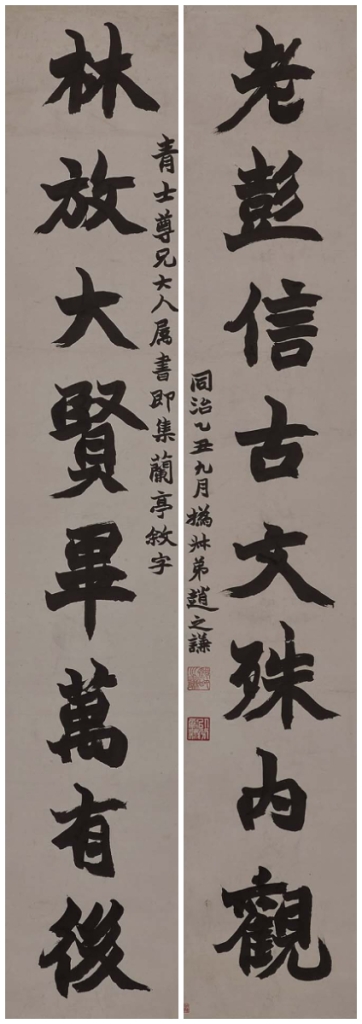 老彭信古文殊内觀
同治乙丑九月撝叔弟趙之謙
青士尊兄大人属書即集蘭亭敘字
林放大賢畢萬有後